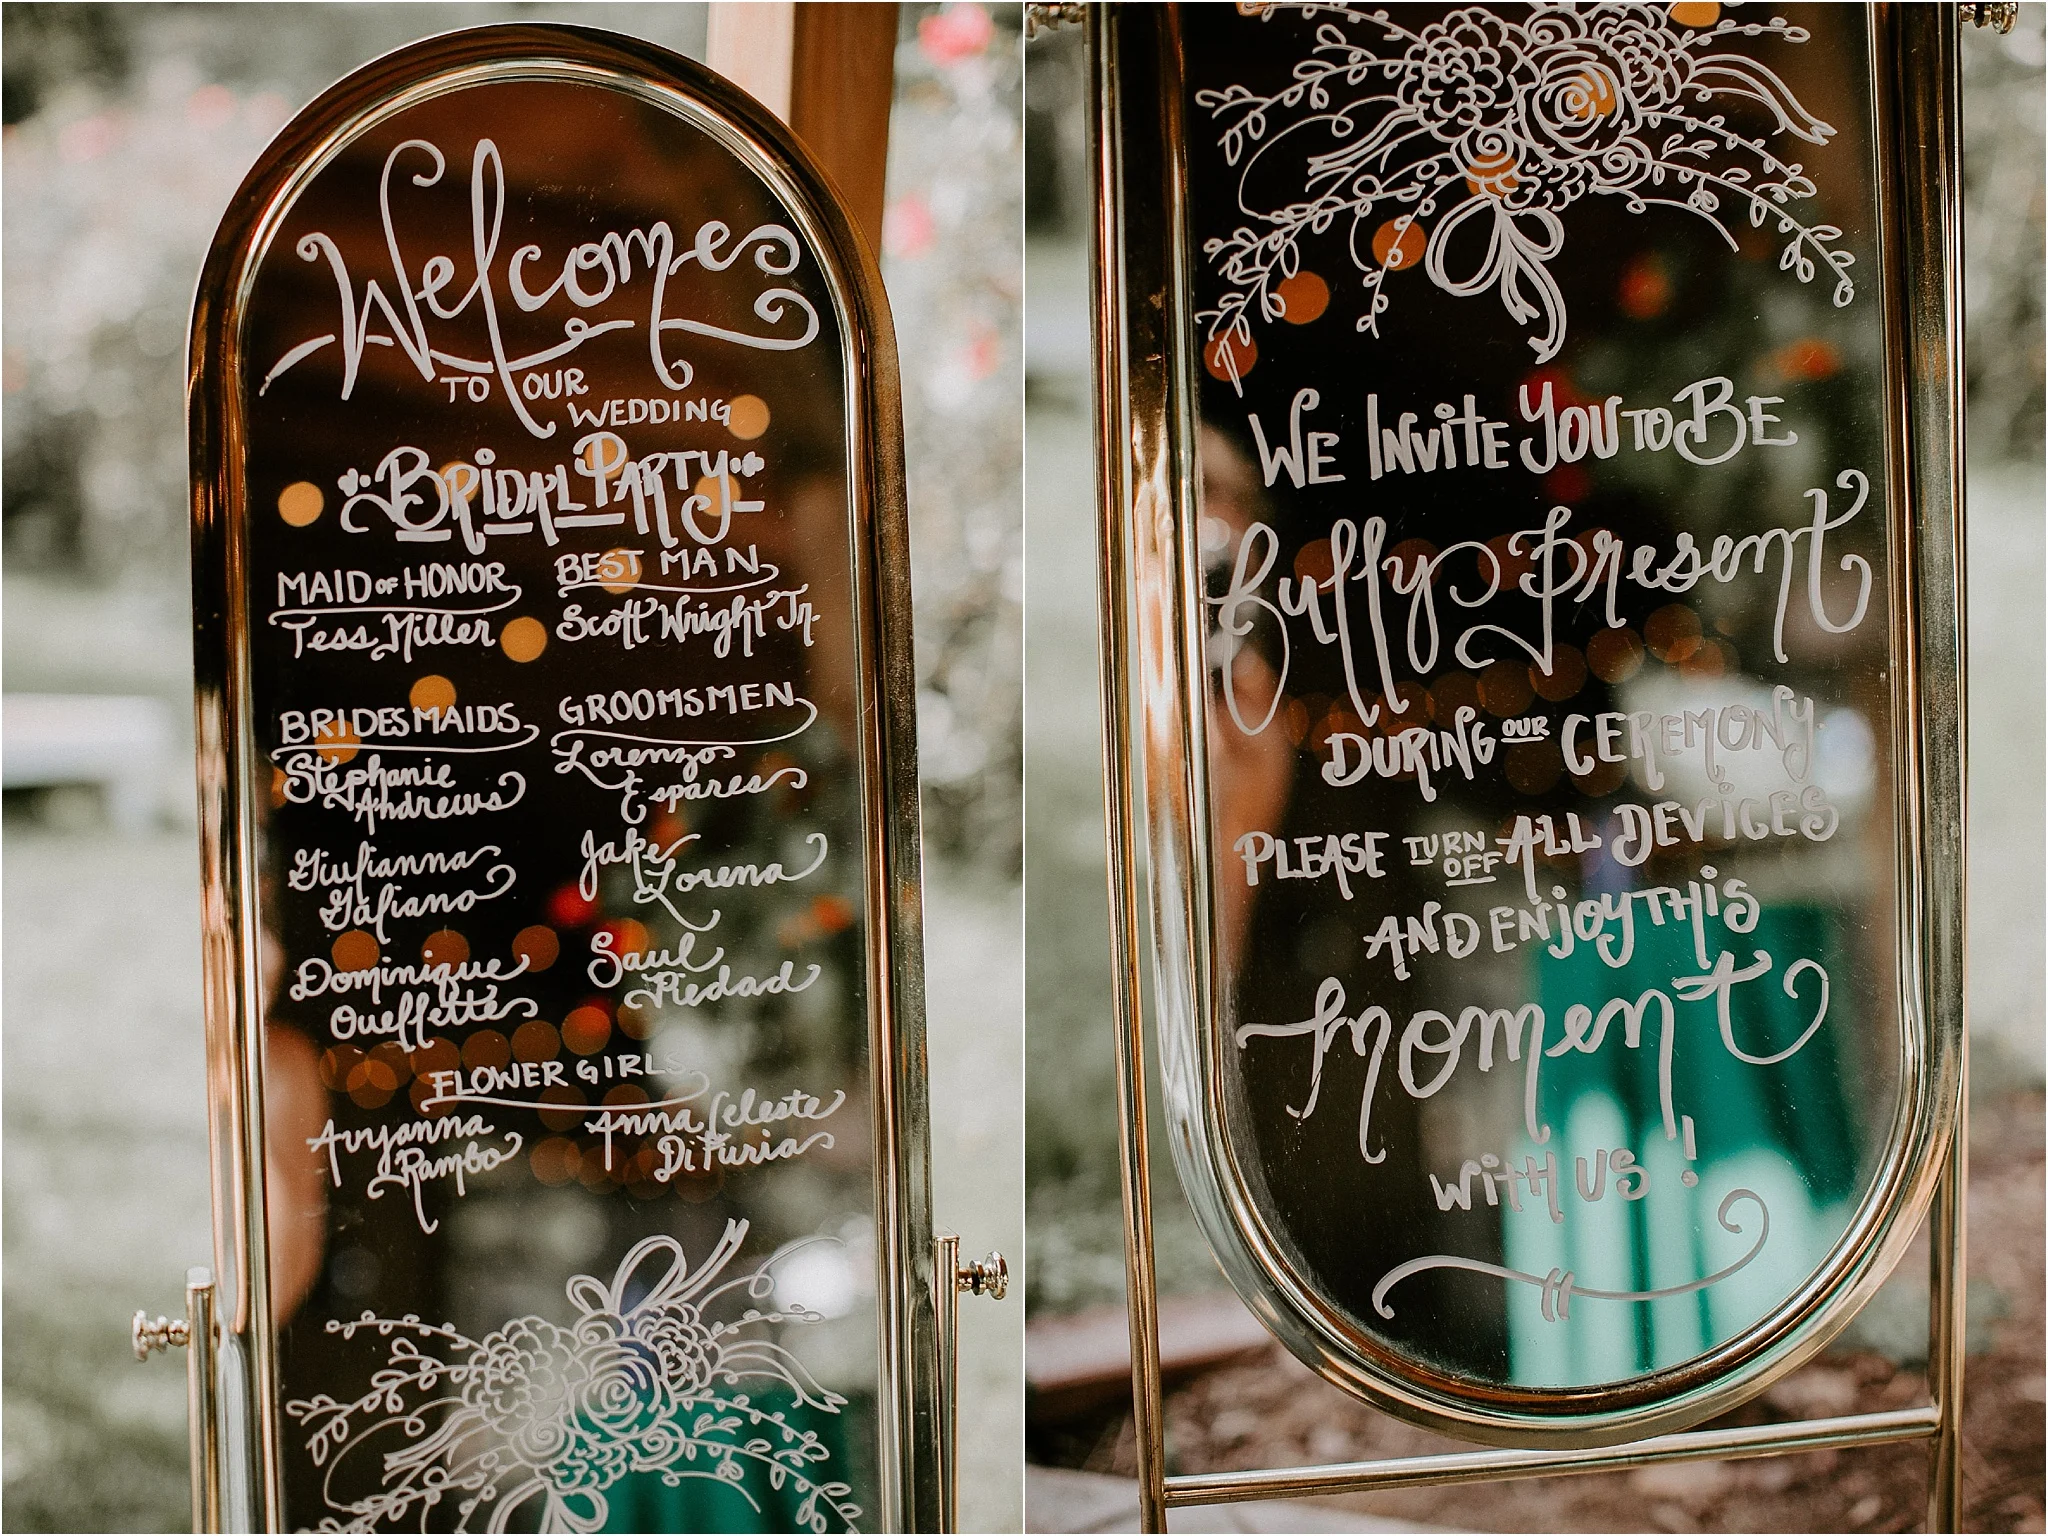 Welcome
TO OUR
WEDDING
BRIDAL PARTY
MAID OF HONOR
Tess Miller
BEST MAN
Scott Wright Jr.
BRIDESMAIDS
Stephanie
Andrews
Giulianna
Galiano
Dominique
Ouellette
GROOMSMEN
Lorenzo
Espares
Jake
Lorena
Saul
Piedad
FLOWER GIRLS
Avyanna
Rambo
Anna Celeste
DiFuria
WE INViTE YOU TO BE
fully Present
DURiNG OUR CEREMONY.
PLEASE TURN OFF ALL DEViCES
AND ENjOY THiS
Moment
WiTH US!